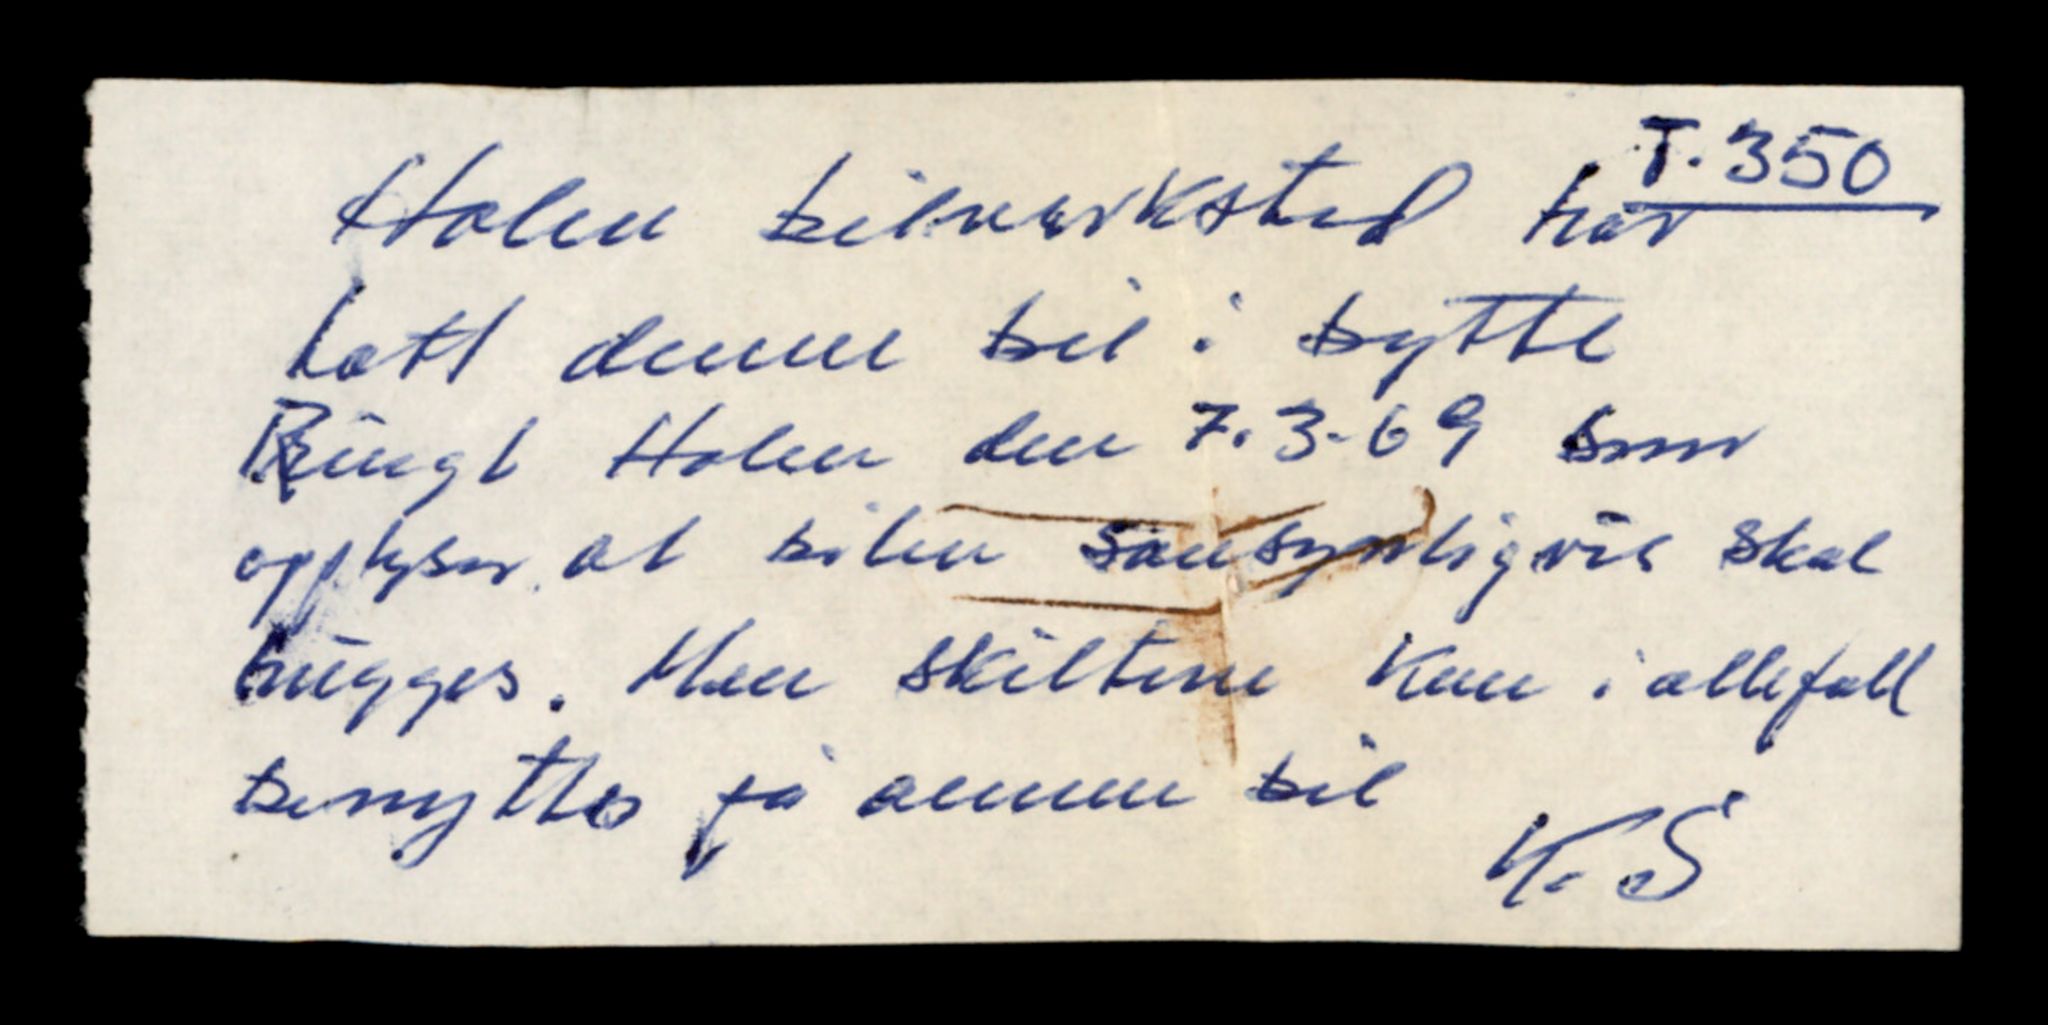 T. 350
Holen bilverksted har
hatt denne bil i bytte
Ringt Holen den 7.3.69 som
opplyser at bilen sansynligvis skal
hugges. Men skiltene kan i allefall
benyttes på annen bil
K. S